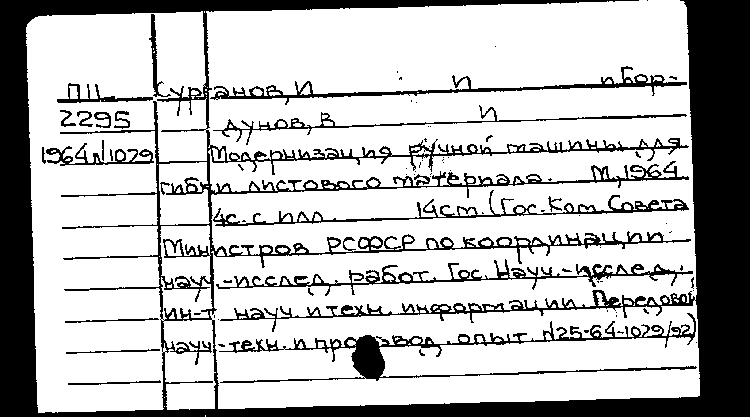 ПII Сурганов, И П и Бор-
2295 дунов, В П
1964 N1079 Модернизация ручной машины для
гибки листового материала. М, 1964
4с. с илл. 14 см. (Гос. Ком. Совета
Министров РСФСР по координации
науч.-исслед. работ. Гос. Науч.-исслед.
ин-т науч. и техн. информации. Передовой
науч.-техн. и производ. опыт. N25-64-1079/92)